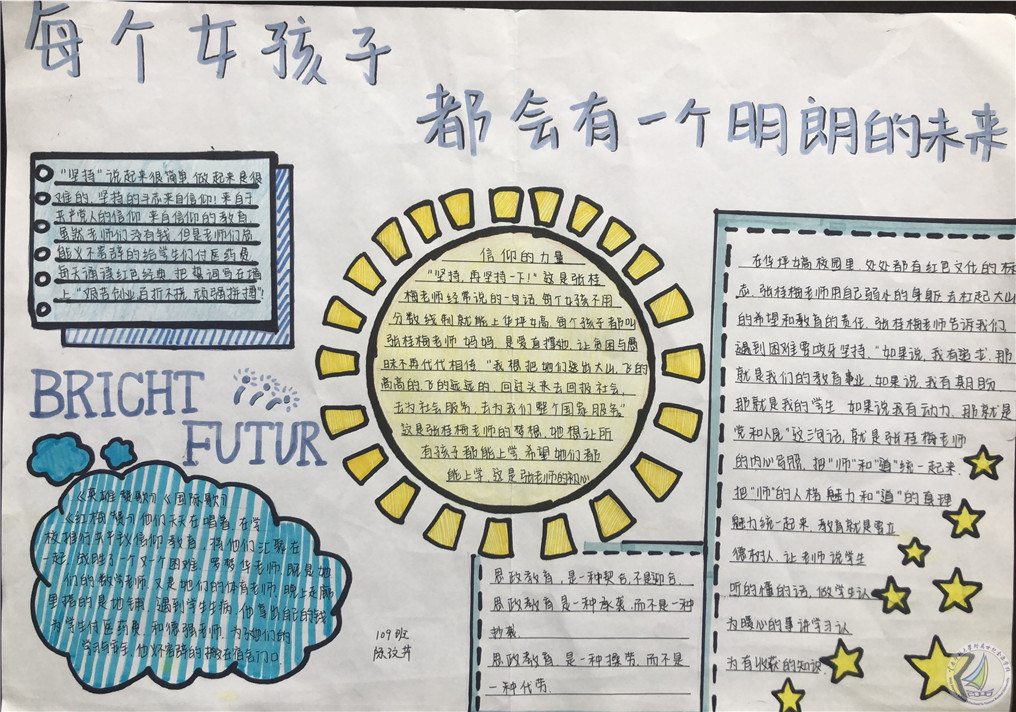 每个女孩子
都会有一个明朗的未来
"坚持"说起来很简单,做起来是很
难的,坚持的斗志来自信仰!来自于
共产党人的信仰,来自信仰的教育
虽然老师们没有钱,但是老师们总
能义不容辞的给学生们付医药费
每天诵读红色经典,把誓词写在墙
上"艰苦创业,百折不挠,顽强拼搏"!
BRICHT
FUTUR
《英雄赞歌》《国际歌》
《红梅赞》他们天天在唱着,在学
一起,战胜了一个又一个困难,
们的数学老师,又是她们的体育老师,晚上走廊
里搭的是地铺,遇到学生生病,他拿出自己的钱
为学生付医药费,和德强老师,为了她们的
109班
信仰的力量
"坚持,再坚持一下!"这是张桂
梅老师经常说的一句话,每个女孩不用
分数线制就能上华坪女高,每个孩子都叫
张桂梅老师妈妈,是爱直撑她,让贫困与愚
昧不再代代相传,"我想把她们送出大山,飞的
高高的,飞的远远的,回过头来去回报社会,
去为社会服务,去为我们整个国家服务"
这是张桂梅老师的梦想,她想让所
有孩子都能上学,希望她们都
能上学,这是张老师的初心
思政教育,是一种契合,不是迎合
思政教育是一种承袭,而不是一种
抄袭
思政教育,是一种携带,而不是
一种代劳
在华坪女高校园里,处处都有红色文化的标
志,张桂梅老师用自己弱小的身躯去扛起大山
的希望和教育的责任,张桂梅老师告诉我们
遇到困难要咬牙坚持,"如果说,我有追求,那
就是我们的教育事业,如果说,我有期盼
那就是我的学生,如果说我有动力,那就是
党和人民"这句话,就是张桂梅老师
的内心写照,把"师"和"道"统一起来,
把"师"的人格魅力和"道"的真理
魅力统一起来,教育就是要立
德树人,让老师说学生
听的懂的话,做学生认
为暖心的事,讲学习认
为有收获的知识